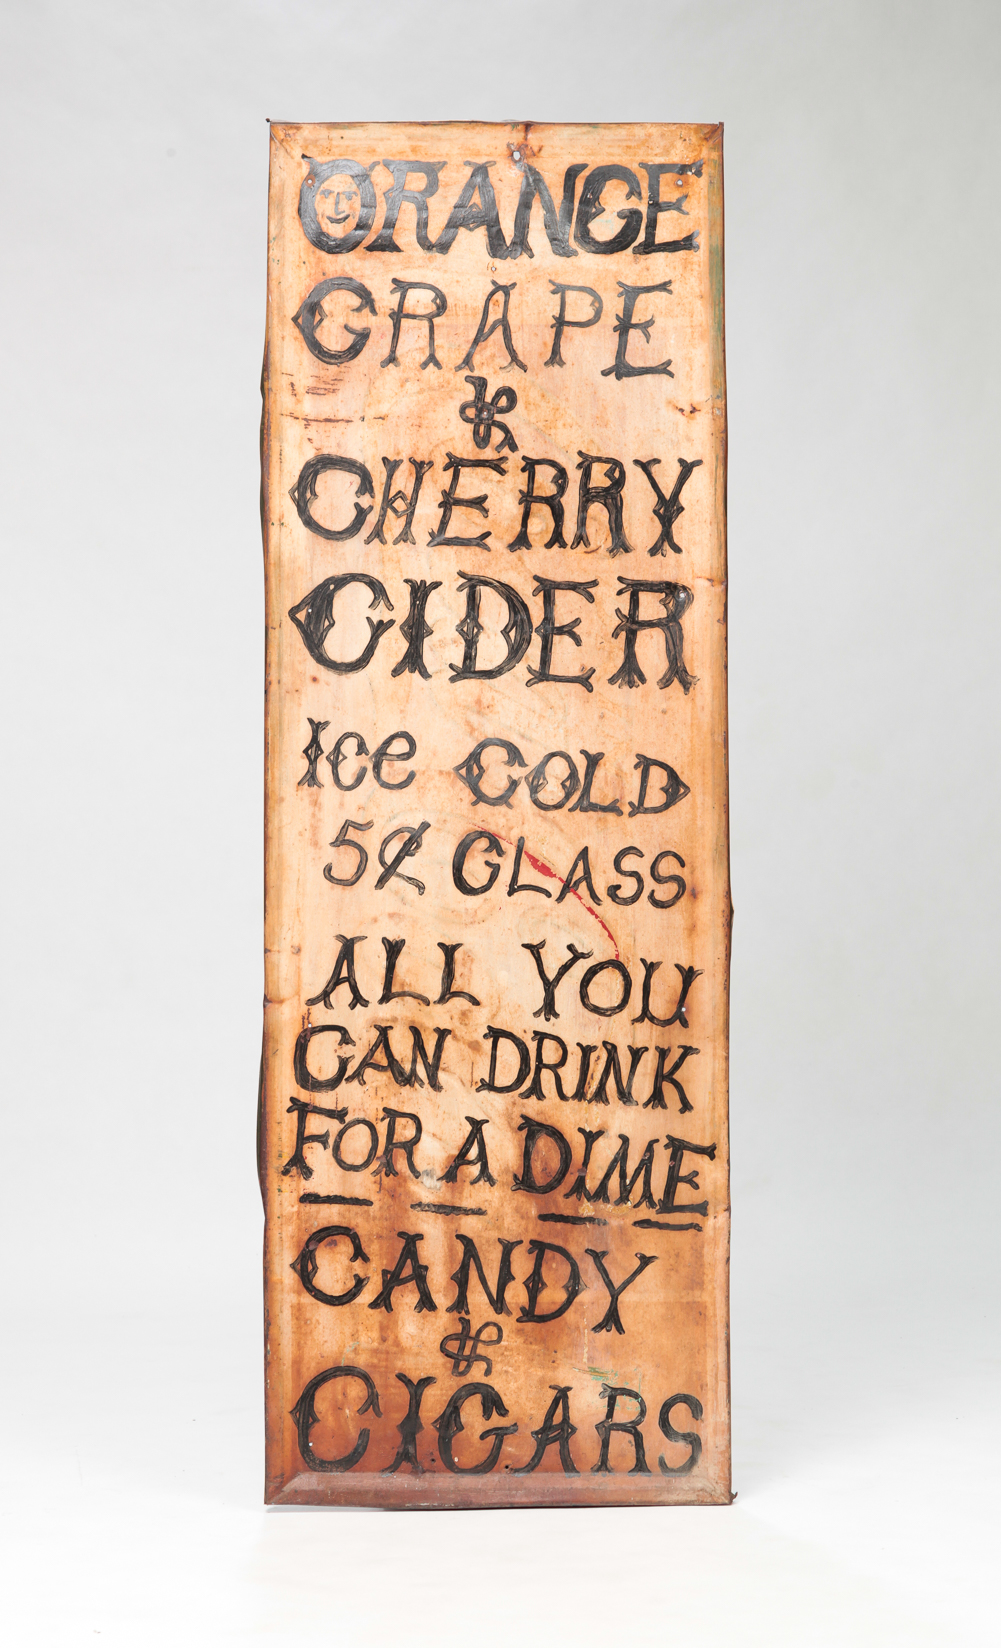 ORANGE
GRAPE
&
CHERRY
CIDER
Ice COLD
5¢ GLASS
ALL YOU
CAN DRINK
FOR A DIME
CANDY
&
CIGARS